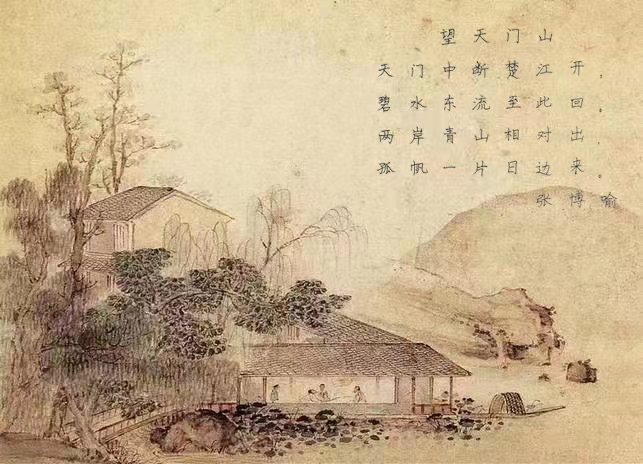 望天门山
天门中断楚江开，
碧水东流至此回。
两岸青山相对出，
孤帆一片日边来。
张博喻